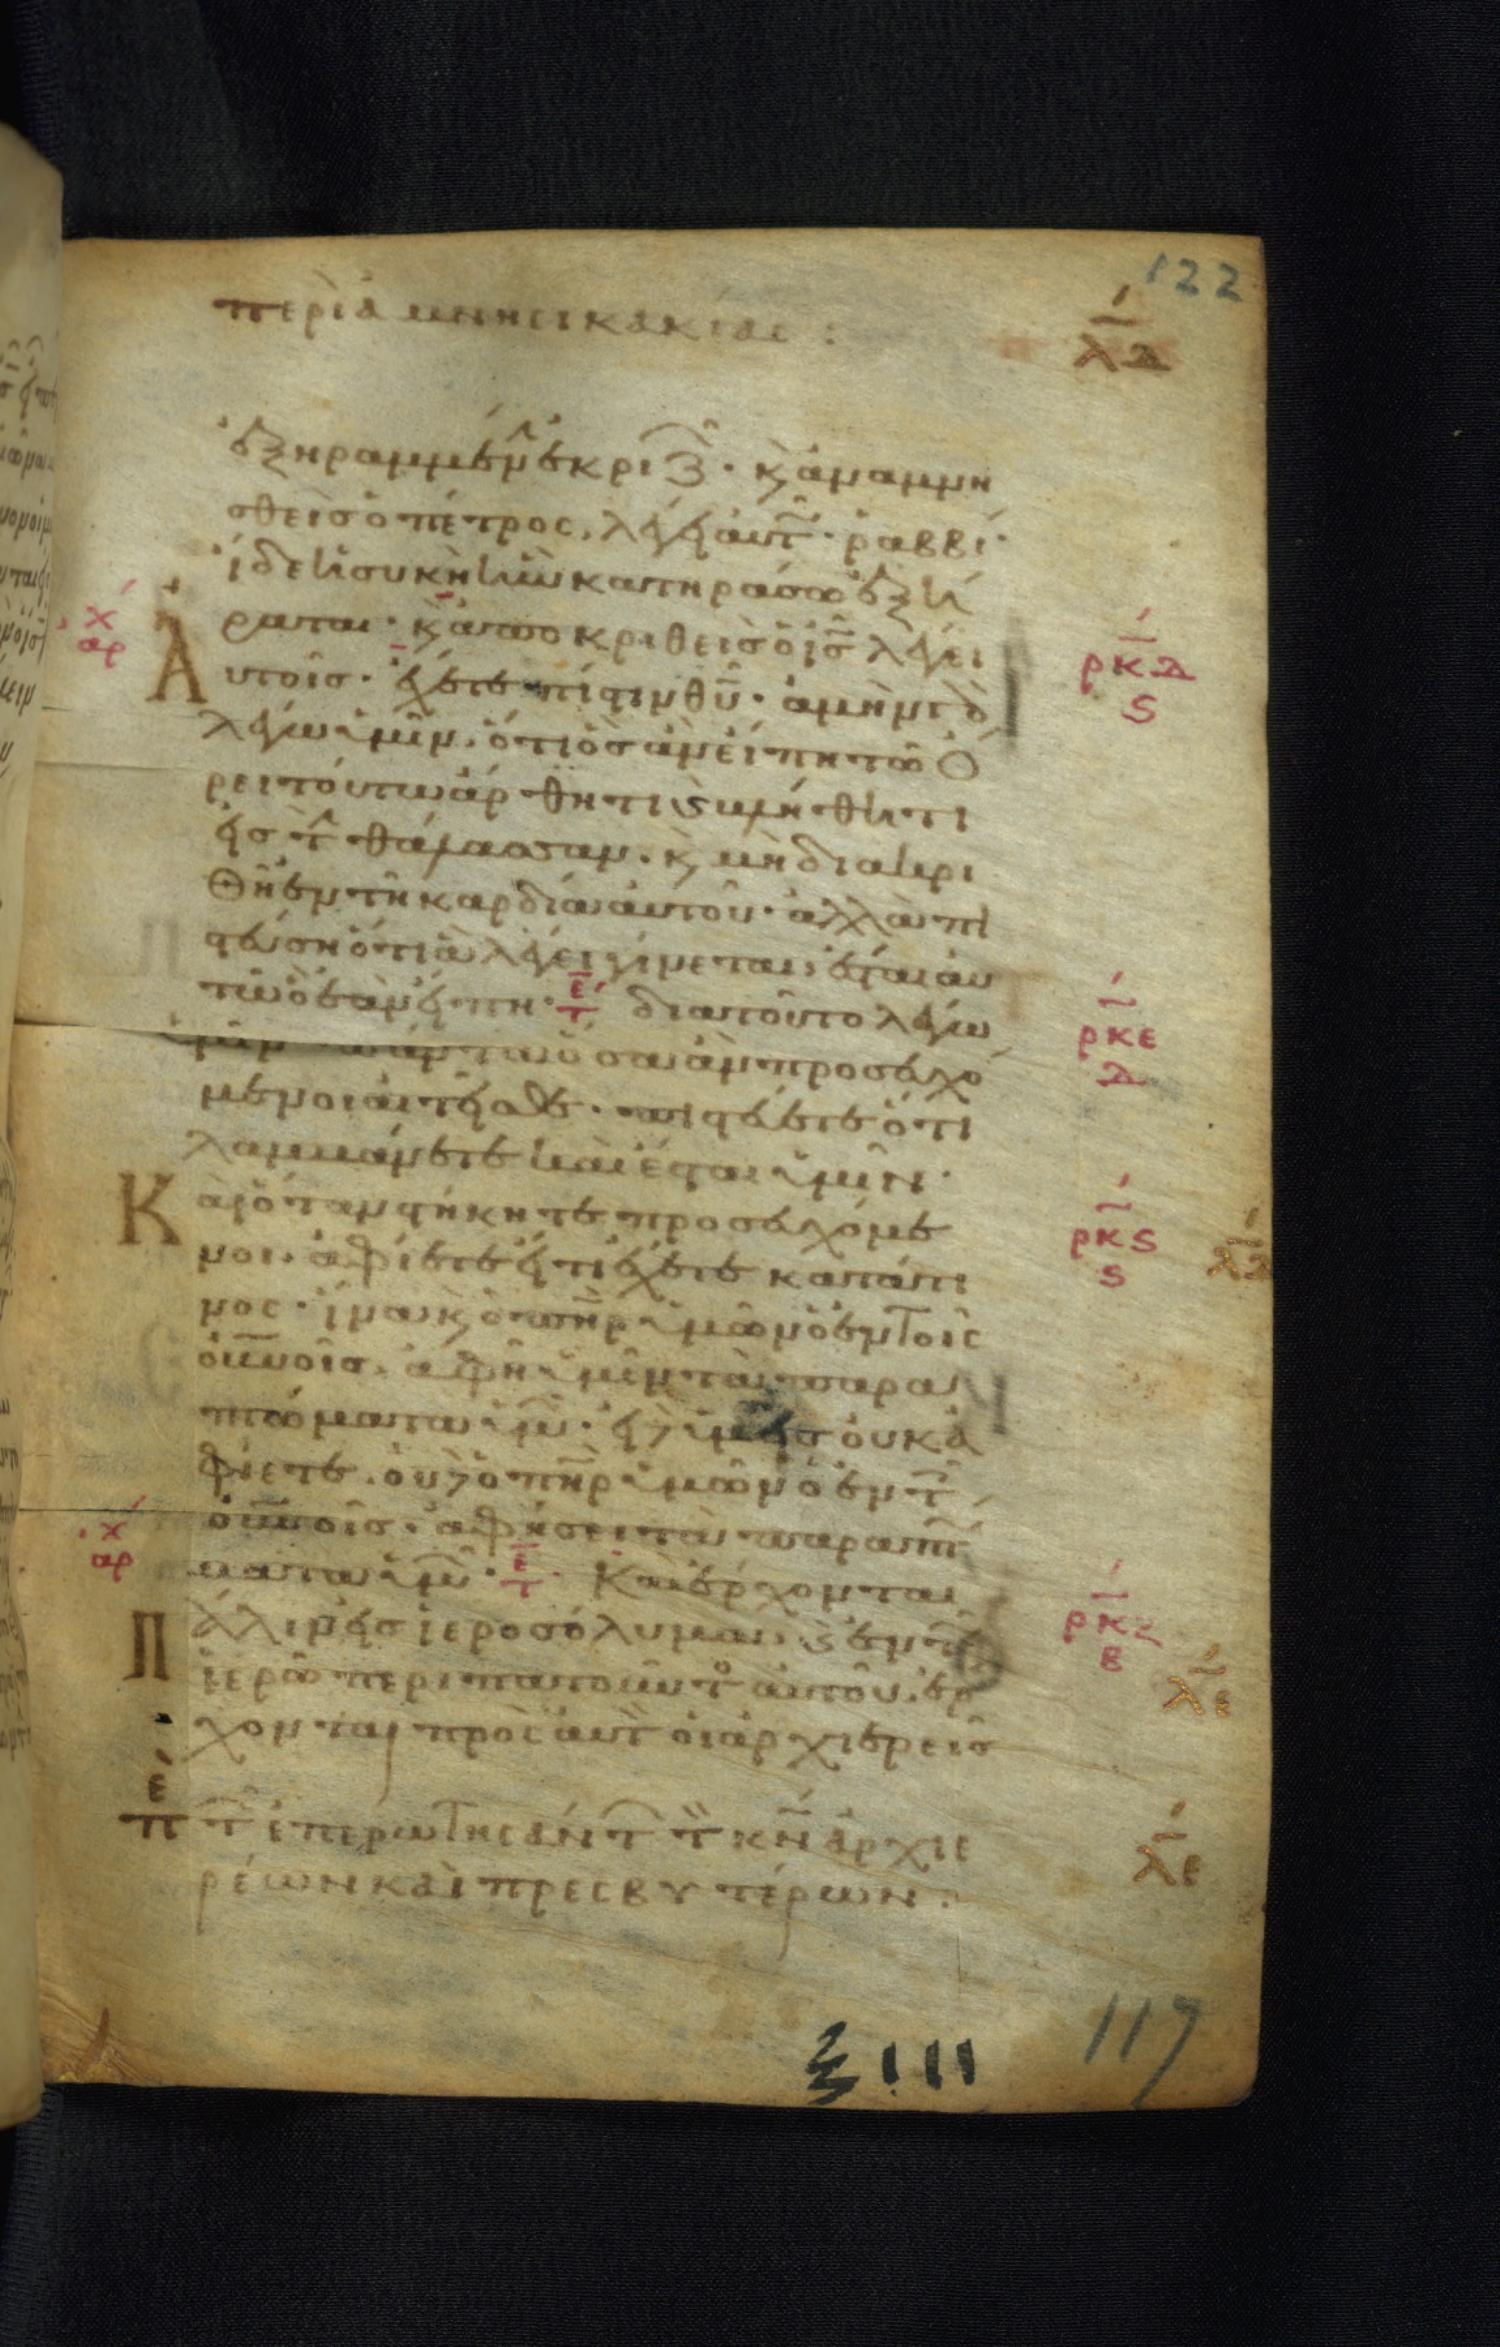 122
περὶ ἀμνησικακίας :
λδ
ἐξηραμμένην ἐκ ριζῶν· κ ἀναμνη
σθεὶσ ὁ πέτρος, λέγει αὐτῶ· ῥαββί·
ἴδε ἡ συκῆ ἣν κατηράσω ἐξή
ρανται· κ ἀποκριθεὶσ ὁ ισ λέγει
αὐτοῖσ· ἔχετε πίστιν θυ· ἀμὴν γὰρ
λέγω ὑμῖν, ὅτι ὃσ ἂν εἴπη τῶ ὄ
ρει τούτω ἄρθητι κ βλήθητι
εἰσ τὴν θάλασσαν, κ μὴ διακρι
θῆ ἐν τῆ καρδία αὐτοῦ· ἀλλὰ πι
στεύση ὅτι ἃ λέγει γίνεται, ἔσται αυ
τῶ ὃ ἐὰν εἴπη· διατοῦτο λέγω
ὑμῖν πάντα ὅσα ἂν προσευχό
μενοι αἰτεῖσθε· πιστεύετε ὅτι
λαμβάνετε καὶ ἔσται ὑμῖν·
Καὶ ὅταν στήκητε προσευχόμε
νοι, ἀφίετε εἴ τι ἔχετε κατά τι
νος· ἵνα κ ὁ πηρ ὑμῶν ὁ ἐν τοῖς
οὐνοῖσ, ἀφῆ ὑμῖν τὰ παρα
πτώματα ὑμῶν· εἰ δὲ ὑμεῖσ οὐκ ἀ
φίετε, οὐδὲ ὁ πηρ ὑμῶν ὁ ἐν τοῖς
οὐνοῖσ, ἀφήσει τὰ παραπτώ
ματα ὑμῶν· Καὶ ἔρχονται
πάλιν εἰσ ἱεροσόλυμα, κ ἐν τῶ
ἱερῶ περιπατοῦντος αὐτοῦ, ἔρ
χονται πρὸς αὐτὸν οἱ ἀρχιερεῖσ
π τ ἐπερωτησάντων τὸν κν ἀρχιε
ρέων καὶ πρεσβυτέρων :
χ
αρ
ρκδ
ς
ρκε
δ
ρκς
ς
λδ
χ
αρ
ρκζ
β
λε
λε
117